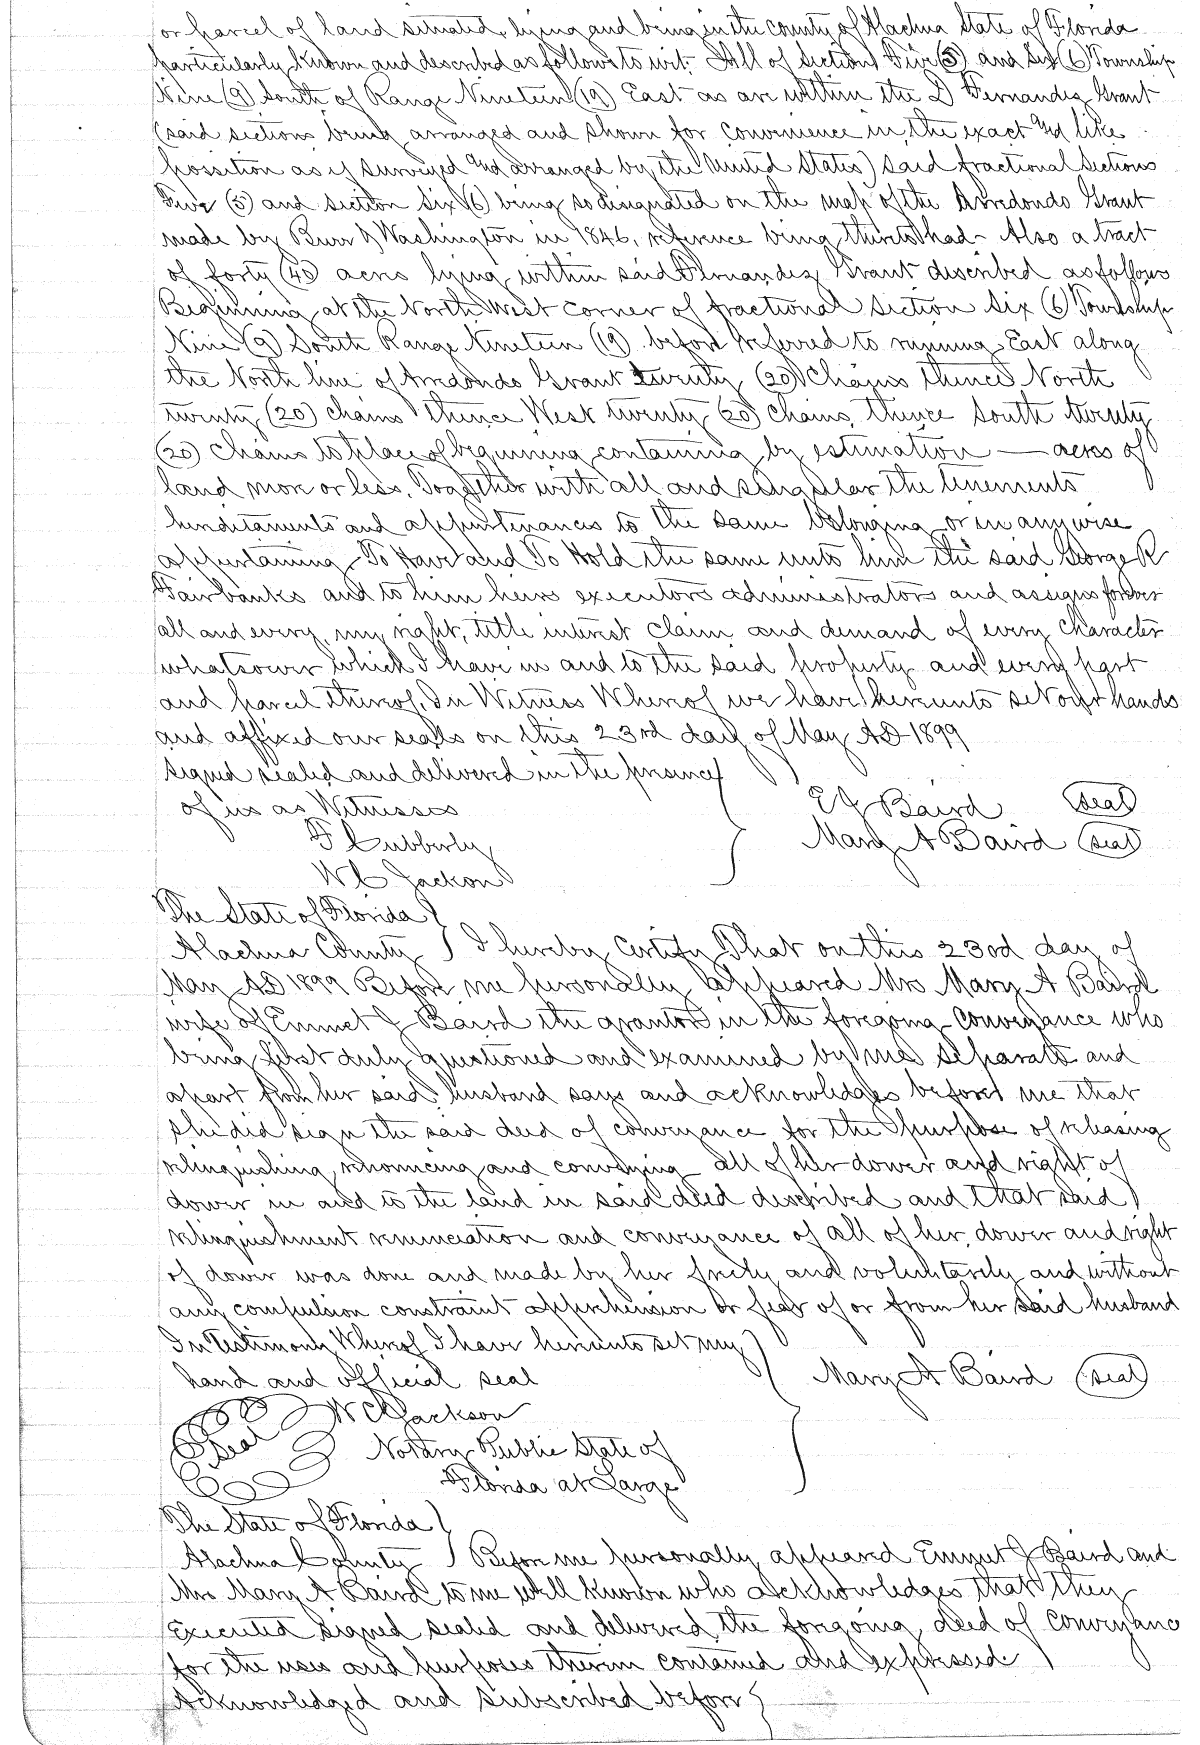 or parcel of land situated, lying and being in the county of Alachua State of Florida
particularly known and described as follows to wit. All of Sections Five (5) and Six (6) Township
Nine (9) South of Range Nineteen (19) East as are within the D Fernandez Grant
(said sections being arranged and shown for convenience in the exact and like
possition as if surveyed and arranged by the United States) said fractional Sections
Five (5) and section Six (6) being so designated on the map of the Arredondo Grant
made by Burr & Washington in 1846, reference being thereto had. Also a tract
of forty (40) acres lying within said Fernandez Grant described as follows
Beginning at the North West corner of fractional section Six (6) Township
Nine (9) South Range Nineteen (19) before referred to running East along
the North line of Arredondo Grant twenty (20) Chains thence North
twenty (20) chains thence West twenty (20) chains thence South twenty
(20) chains to place of beginning containing by estimation — acres of
land more or less. Together with all and singular the tenements
hereditaments and appurtenances to the same belonging or in anywise
appertaining. To Have and To Hold the same unto him the said George R
Fairbanks and to him heirs executors administrators and assigns forever
all and every my right, title interest claim and demand of every character
whatsoever which I have in and to the said property and every part
and parcel thereof. In Witness Whereof we have hereunto set our hands
and affixed our seals on this 23rd day of May AD 1899
Signed sealed and delivered in the presence
of us as Witnesses
E J Baird (seal)
F Cubberly
Mary A Baird (seal)
W C Jackson
The State of Florida
Alachua County I hereby Certify That on this 23rd day of
May AD 1899 Before me personally appeared Mrs Mary A Baird
wife of Emmet J Baird the grantors in the foregoing Conveyance who
being first duly questioned and examined by me separate and
apart from her said husband says and acknowledges before me that
she did sign the said deed of conveyance for the purpose of releasing
relinquishing renouncing and conveying all of her dower and right of
dower in and to the land in said deed described and that said
relinquishment renunciation and conveyance of all of her dower and right
of dower was done and made by her freely and voluntarily and without
any compulsion constraint apprehension or fear of or from her said husband
In Testimony Whereof I have hereunto set my
hand and official seal
Mary A Baird (seal)
W C Jackson
Seal
Notary Public State of
Florida at Large
The State of Florida
Alachua County Before me personally appeared Emmet J Baird and
Mrs Mary A Baird to me well known who acknowledges that they
Executed signed sealed and delivered the foregoing deed of Conveyance
for the uses and purposes therein contained and expressed.
Acknowledged and subscribed before